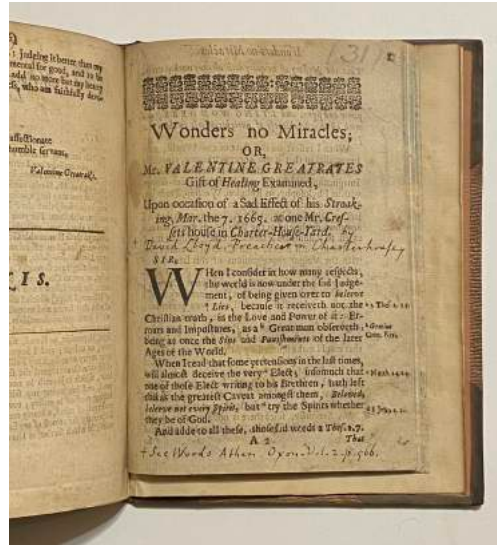 : judging it better than my
mental for good, and to be
add no more but my hearty
, who am faithfully
affectionate
humble servant,
Valentine Greatraks.
I S.
(31)
Wonders no Miracles;
OR,
Mr. VALENTINE GREATRATES
Gift of Healing Examined,
Upon occasion of a Sad Effect of his Stroak-
ing, Mar. the 7. 1665. at one Mr. Cres-
sets house in Charter-House-Yard. by
David Lloyd, Preacher in Charterhouse
SIR,
WHen I consider in how many respects,
the world is now under the sad Judge-
ment, of being given over to beleeve
Lies, because it receiveth not the 2 Thes. 2.
Christian truth, in the Love and Power of it: Er-
rours and Impostures, as a b Great man observeth,
being at once the Sins and Punishments of the later
Ages of the World.
When I read that some pretensions in the last times,
will almost deceive the very c Elect, insomuch that
one of those Elect writing to his Brethren, hath left
this as the greatest Caveat amongst them, Beloved,
beleeve not every Spirit, but d try the Spirits whether
they be of God.
And adde to all these, those sad words 2 Thes. 2. 7.
A 2 That
+ See Woods Athen. Oxon. Vol. 2. p. 906.